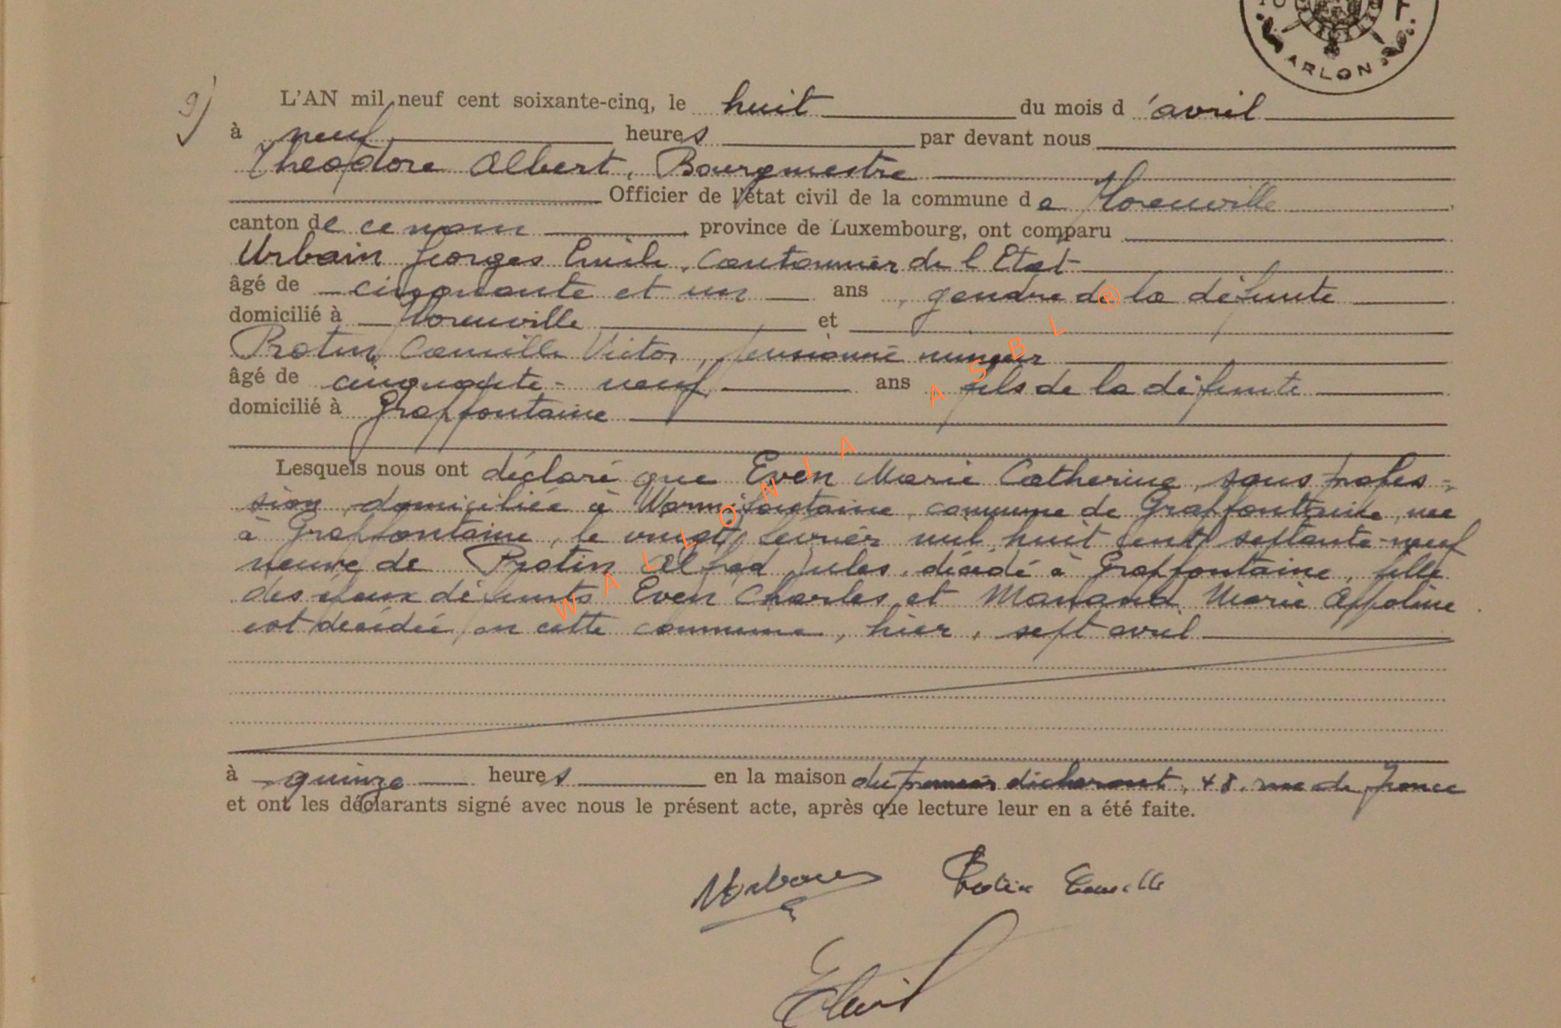 ARLON
9) L'AN mil neuf cent soixante-cinq, le huit du mois d'avril
à neuf heures par devant nous
Théodore Albert, Bourgmestre
Officier de l'état civil de la commune de Florenville
canton de ce nom province de Luxembourg, ont comparu
Urbain Georges Emile, Cantonnier de l'Etat
âgé de cinquante et un ans, gendre de la défunte
domicilié à Florenville et
Protin Camille Victor, pensionné mineur
âgé de cinquante-neuf ans fils de la défunte
domicilié à Grapfontaine
Lesquels nous ont déclaré que Even Marie Catherine, sans profes-
sion, domiciliée à Warmifontaine, commune de Grapfontaine, née
à Grapfontaine, le vingt février mil huit cent septante-neuf
veuve de Protin Alfred Jules, décédé à Grapfontaine, fille
des époux défunts Even Charles et Manand Marie Appoline
est décédée en cette commune, hier, sept avril
à quinze heures en la maison du premier déclarant, 48, rue de France
et ont les déclarants signé avec nous le présent acte, après que lecture leur en a été faite.
Urbain Protin Camille
WALLONIA ASBL ©